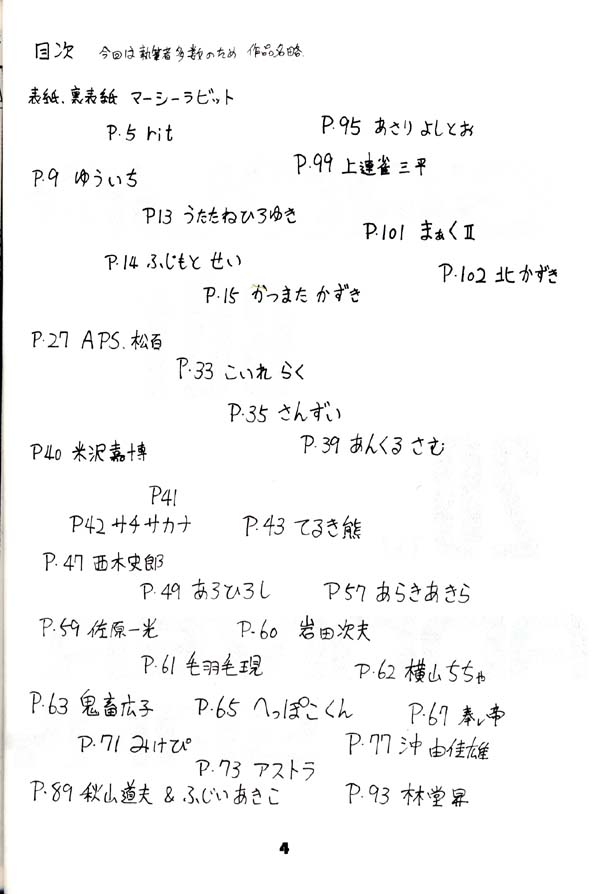 目次 今回は執筆者多数のため 作品名略.
表紙.裏表紙 マーシーラビット
P.5 rit
P.95 あさりよしとお
P.99 上連雀三平
P.9 ゆういち
P13 うたたねひろゆき
P.101 まぁくII
P.14 ふじもと せい
P.102 北かずき
P.15 かつまた かずき
P.27 APS.松百
P.33 こいれ らく
P.35 さんずい
P.39 あんくる さむ
P40 米沢嘉博
P41
P42 サチサカナ
P.43 てるき熊
P.47 西木史郎
P.49 あろひろし
P57 あらきあきら
P.59 佐原一光
P.60 岩田次夫
P.61 毛羽毛現
P.62 横山ちちゃ
P.63 鬼畜広子
P.65 へっぽこくん
P.67
P.71 みけぴ
P.77 沖由佳雄
P.73 アストラ
P.89 秋山道夫 & ふじいあきこ
P.93 林堂昇
4